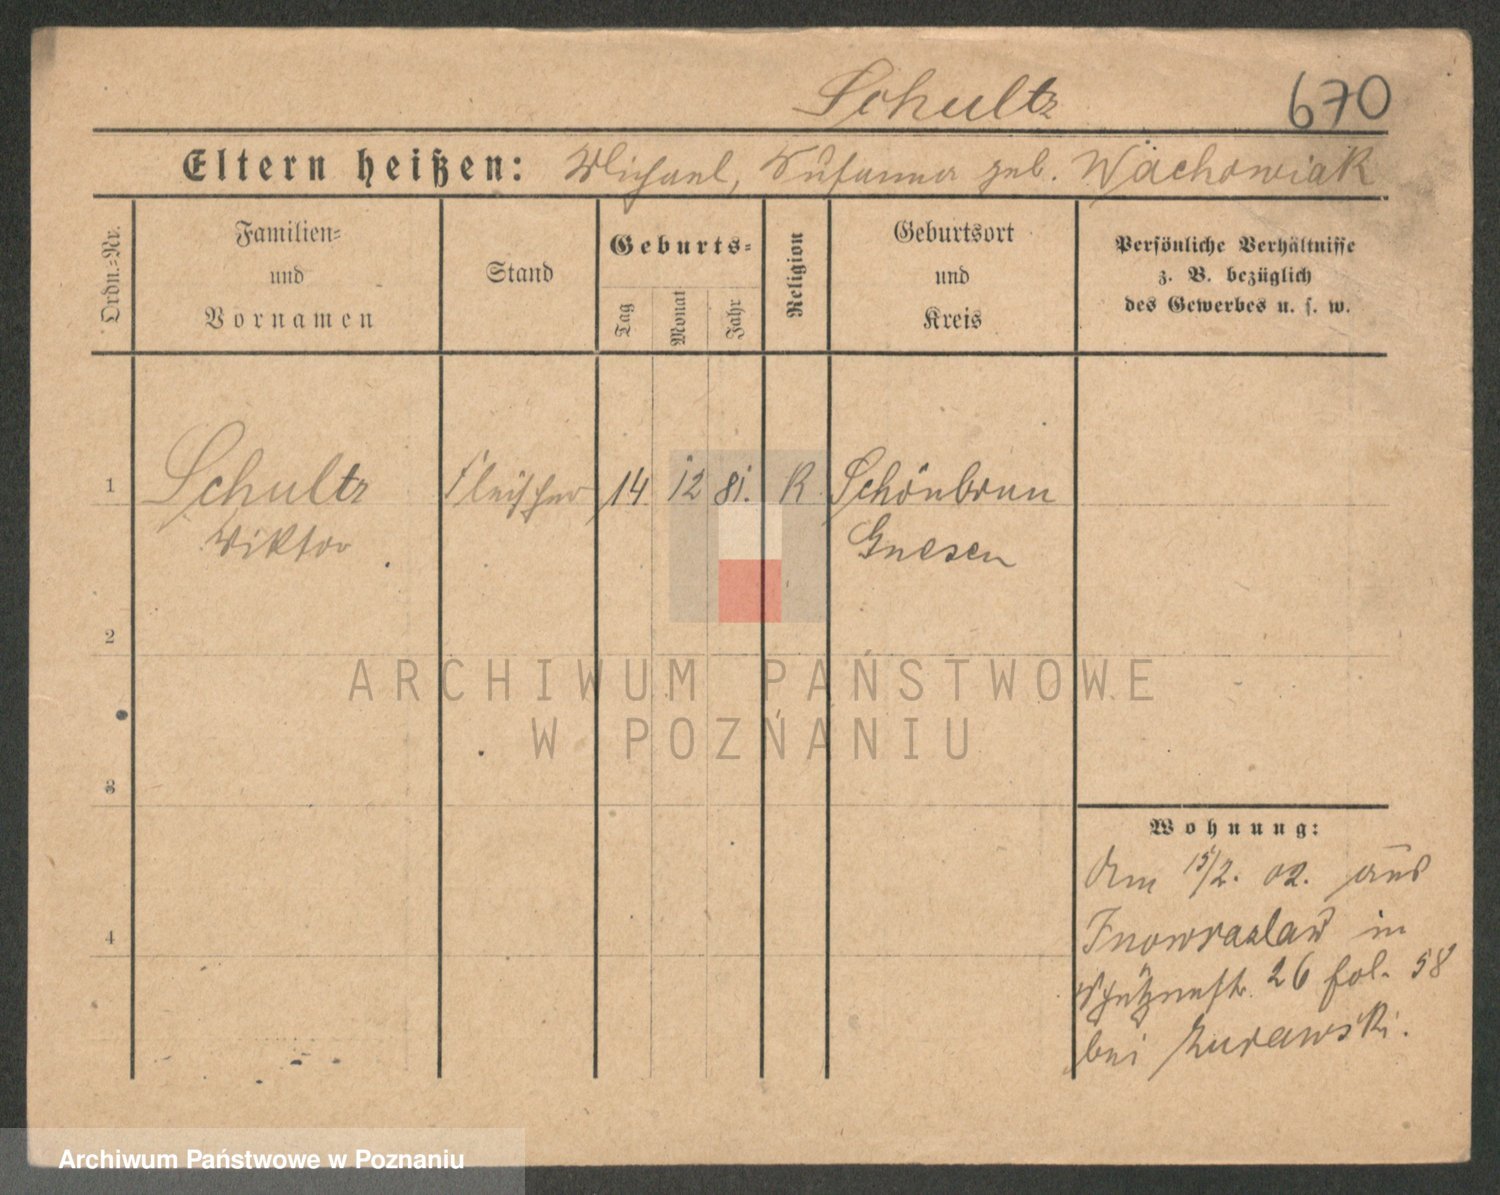 Schultz 670
Eltern heißen: Michael, Susanna geb. Wachowiak
Ordn.=Nr.
Familien=
und
Vornamen
Stand
Geburts=
Tag
Monat
Jahr
Religion
Geburtsort
und
Kreis
Persönliche Verhältnisse
z. B. bezüglich
des Gewerbes u. s. w.
1 Schultz Fleischer 14 12 81. R Schönbrun
Viktor Gnesen
2
3
4
Wohnung:
Am 15/2. 02. aus
Inowrazlaw in
Schützenstr. 26 fol. 58
bei Zurawski.
ARCHIWUM PAŃSTWOWE
W POZNANIU
Archiwum Państwowe w Poznaniu